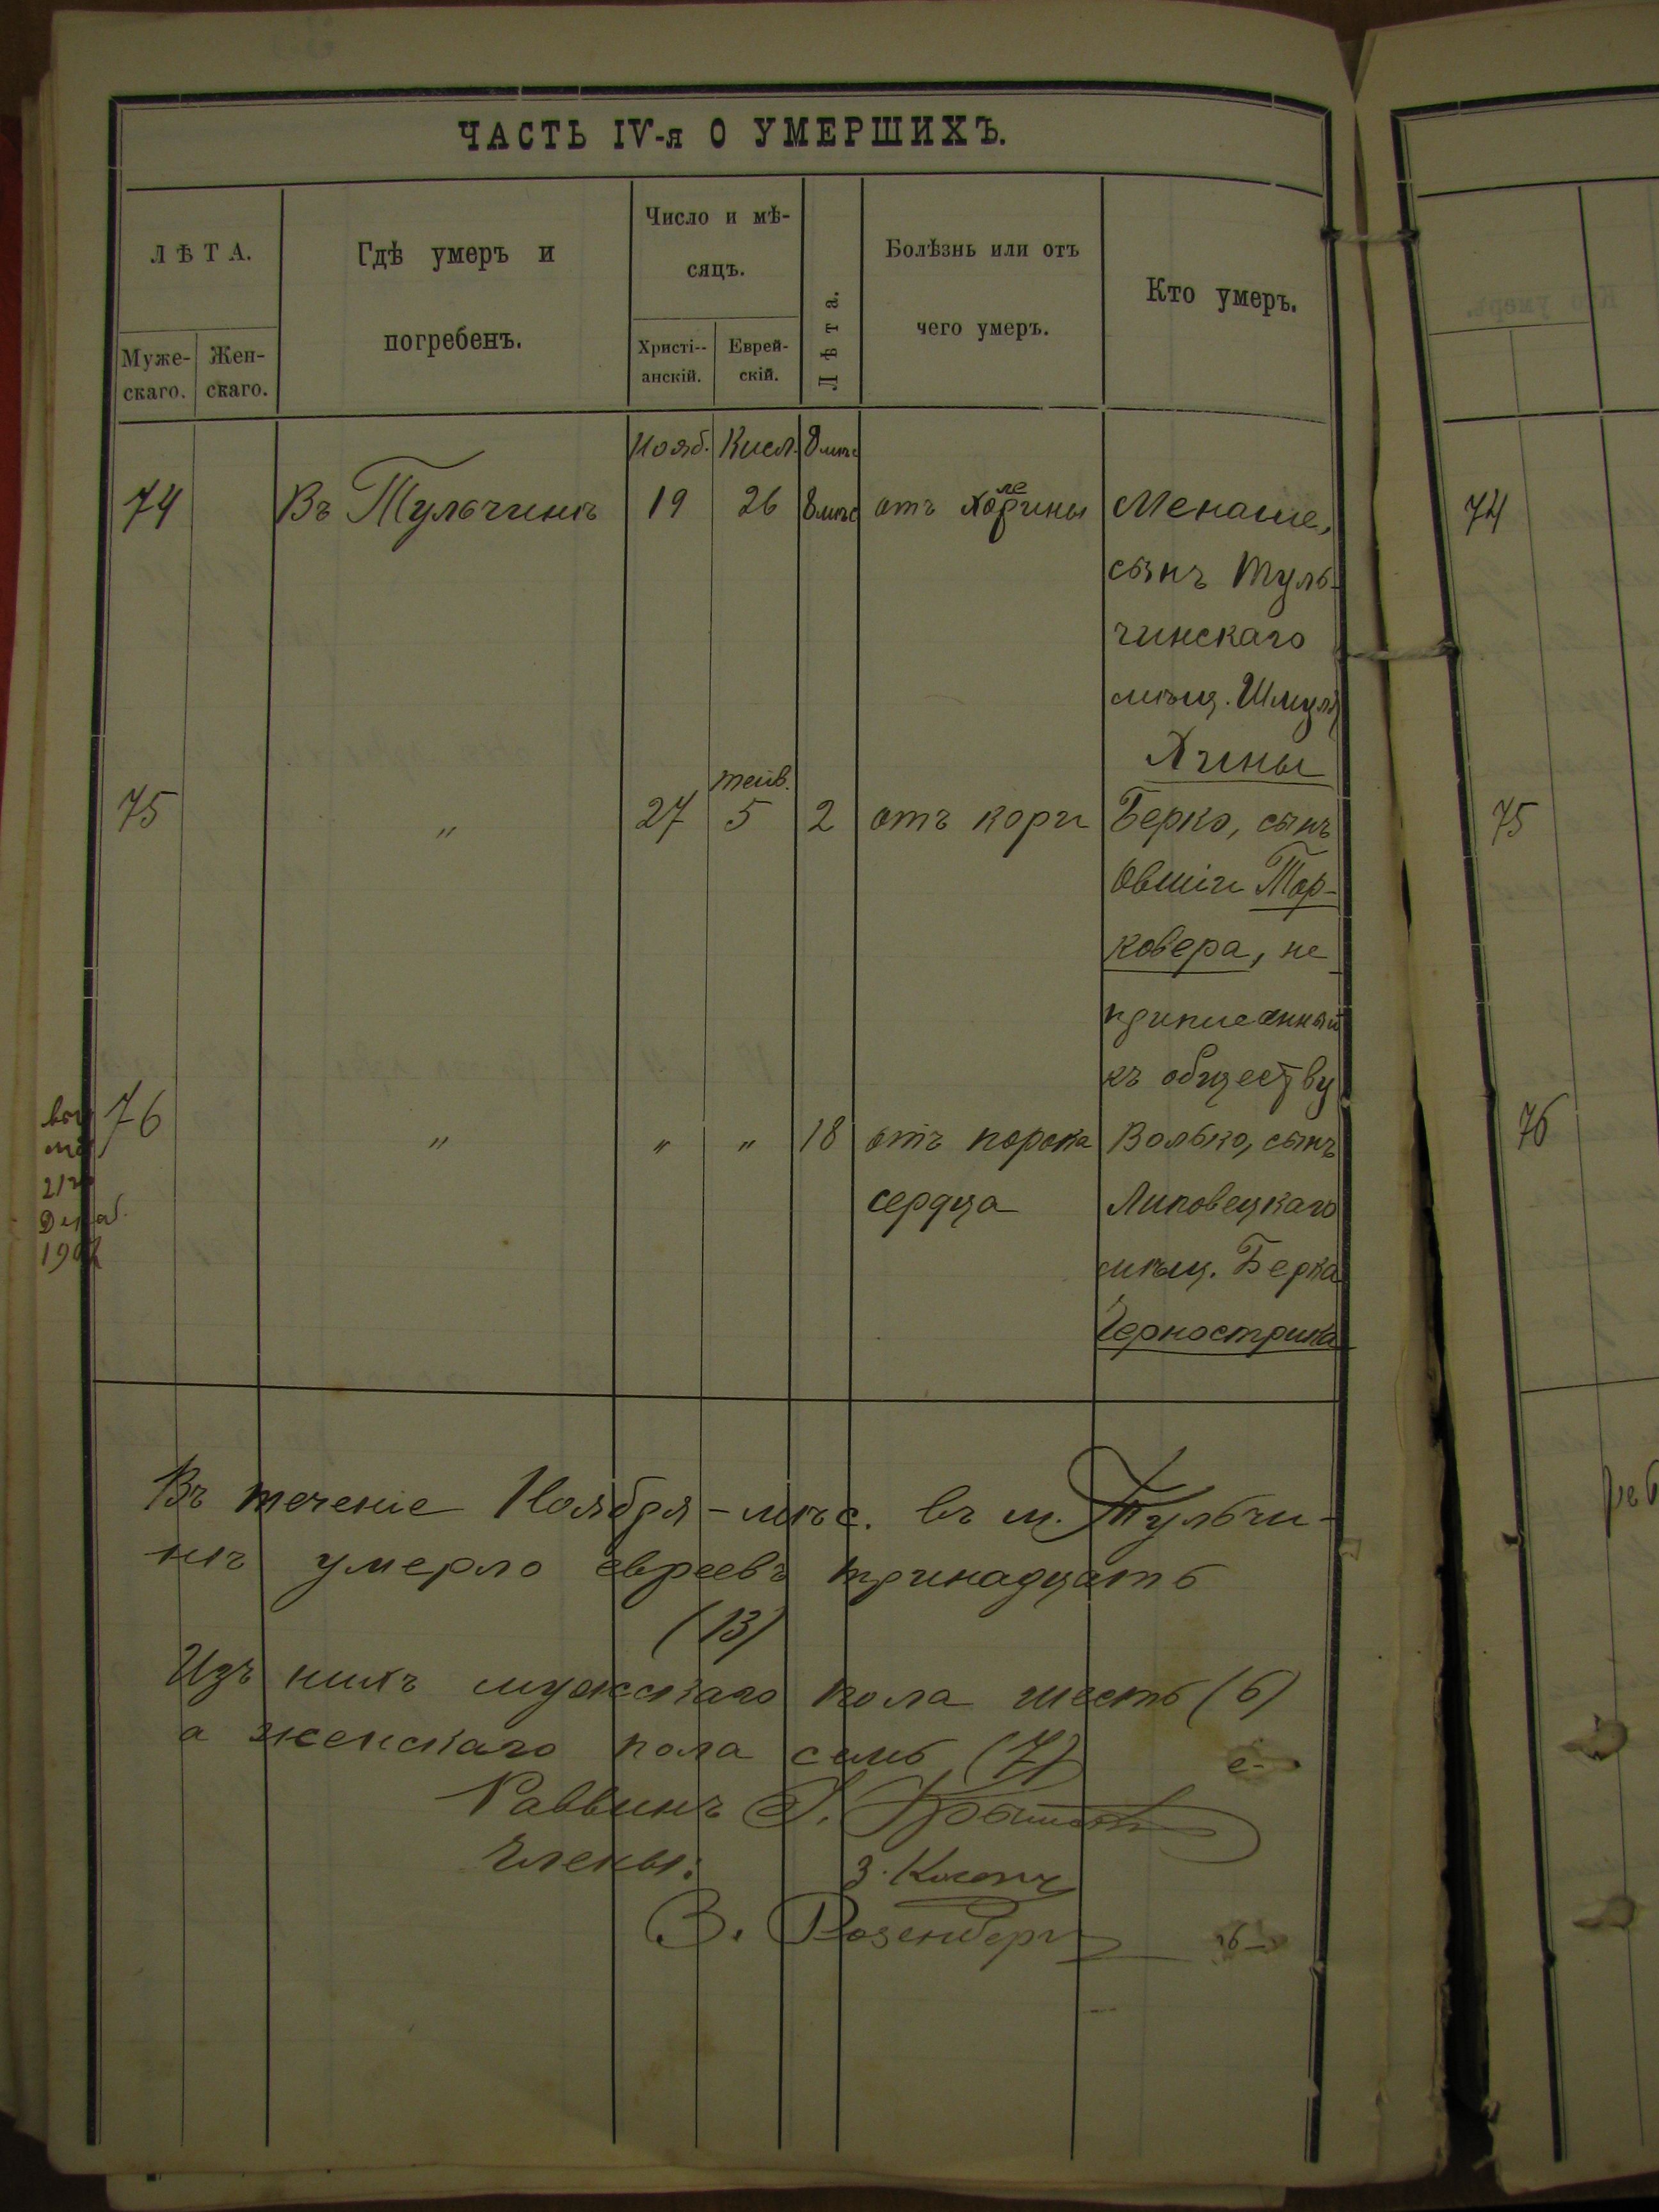 ЧАСТЬ IV-я О УМЕРШИХЪ.
ЛѢТА.
Муже-
скаго.
Жен-
скаго.
Гдѣ умеръ и
погребенъ.
Число и мѣ-
сяцъ.
Христі-
анскій.
Еврей-
скій.
Лѣта.
Болѣзнь или отъ
чего умеръ.
Кто умеръ.
Нояб. Кисл. 8 мѣс
74 Въ Тульчинѣ 19 26 8 мѣс отъ Менаше,
сынъ Туль-
чинскаго
мѣщ. Шмуля
Хчины
тейв.
75 " 27 5 2 отъ кори Берко, сынъ
Овшіи Тор-
ковера, не
приписанный
къ обществу
76 " " " 18 отъ порока Волько, сынъ
сердца Липовецкаго
мѣщ. Берка
Чернострика
21го
Декаб.
Въ теченіе Ноября-мѣс. въ м. Тульчи-
нѣ умерло евреевъ тринадцать
(13)
Изъ нихъ мужскаго пола шесть (6)
а женскаго пола семь (7)
Раввинъ
Члены:
З. Коганъ
В. Розенбергъ
74
75
76